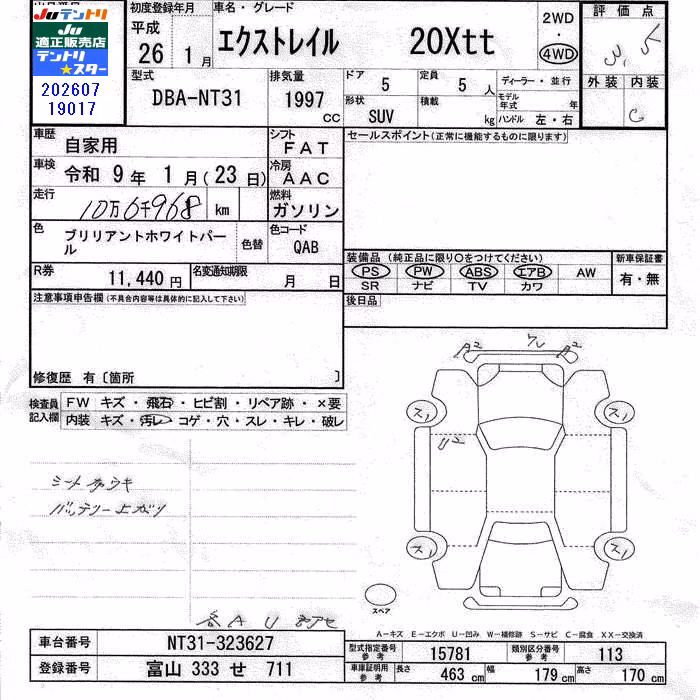 出品番号
JUテントリ
JU
適正販売店
テントリ
スター
202607
19017
初度登録年月
平成
26 1 月
車名・グレード
エクストレイル 20Xtt
2WD
・
4WD
評価点
3.5
外装 内装
C
型式
DBA-NT31
排気量
1997
CC
ドア
5
定員
5 人
ディーラー・並行
形状
SUV
積載
kg
モデル
年式 年
ハンドル 左・右
車歴
自家用
シフト
FAT
セールスポイント(正常に機能するものに限ります)
車検
令和 9 年 1 月(23 日)
冷房
AAC
走行
10万6千968 km
燃料
ガソリン
色
ブリリアントホワイトパー
ル
色替
色コード
QAB
R券
11,440 円
名変通知期限
月 日
装備品(純正品に限り○をつけてください)
新車保証書
PS PW ABS エアB AW
SR ナビ TV カワ
有・無
後日品
注意事項申告欄(不具合内容等は具体的に記入して下さい)
修復歴 有〔箇所 〕
検査員
記入欄
FW キズ・飛石・ヒビ割・リペア跡・×要
内装 キズ・汚レ・コゲ・穴・スレ・キレ・破レ
シートスウキ
バッテリー上がり
各AUヨアセ
A2
ワレ
A2
ス1
ス1
U2
ス1
ス1
スペア
A-キズ E-エクボ U-凹み W-補修跡 S-サビ C-腐食 XX-交換済
車台番号
NT31-323627
型式指定番号
参考
15781
類別区分番号
参考
113
登録番号
富山 333 せ 711
車庫証明用
参考
長さ
463 cm
幅
179 cm
高さ
170 cm